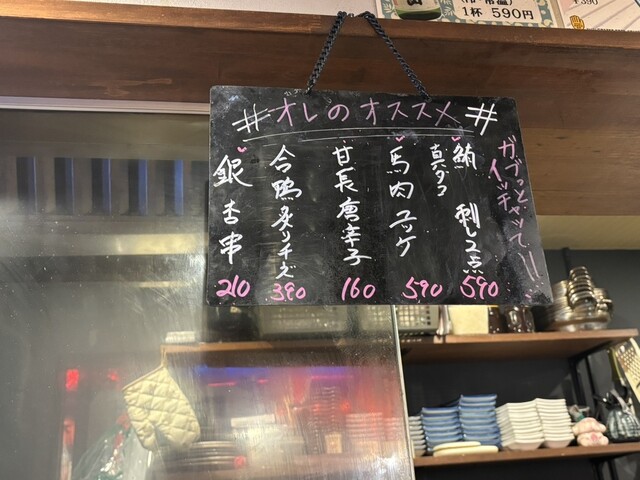 (冷・常温)
1杯 590円
¥390
#オレのオススメ#
ガブっと
イッチャッて!!
鮪
真ダコ
刺し2点
590
馬肉ユッケ
590
甘長唐辛子
160
合鴨炙りチーズ
390
銀杏串
210